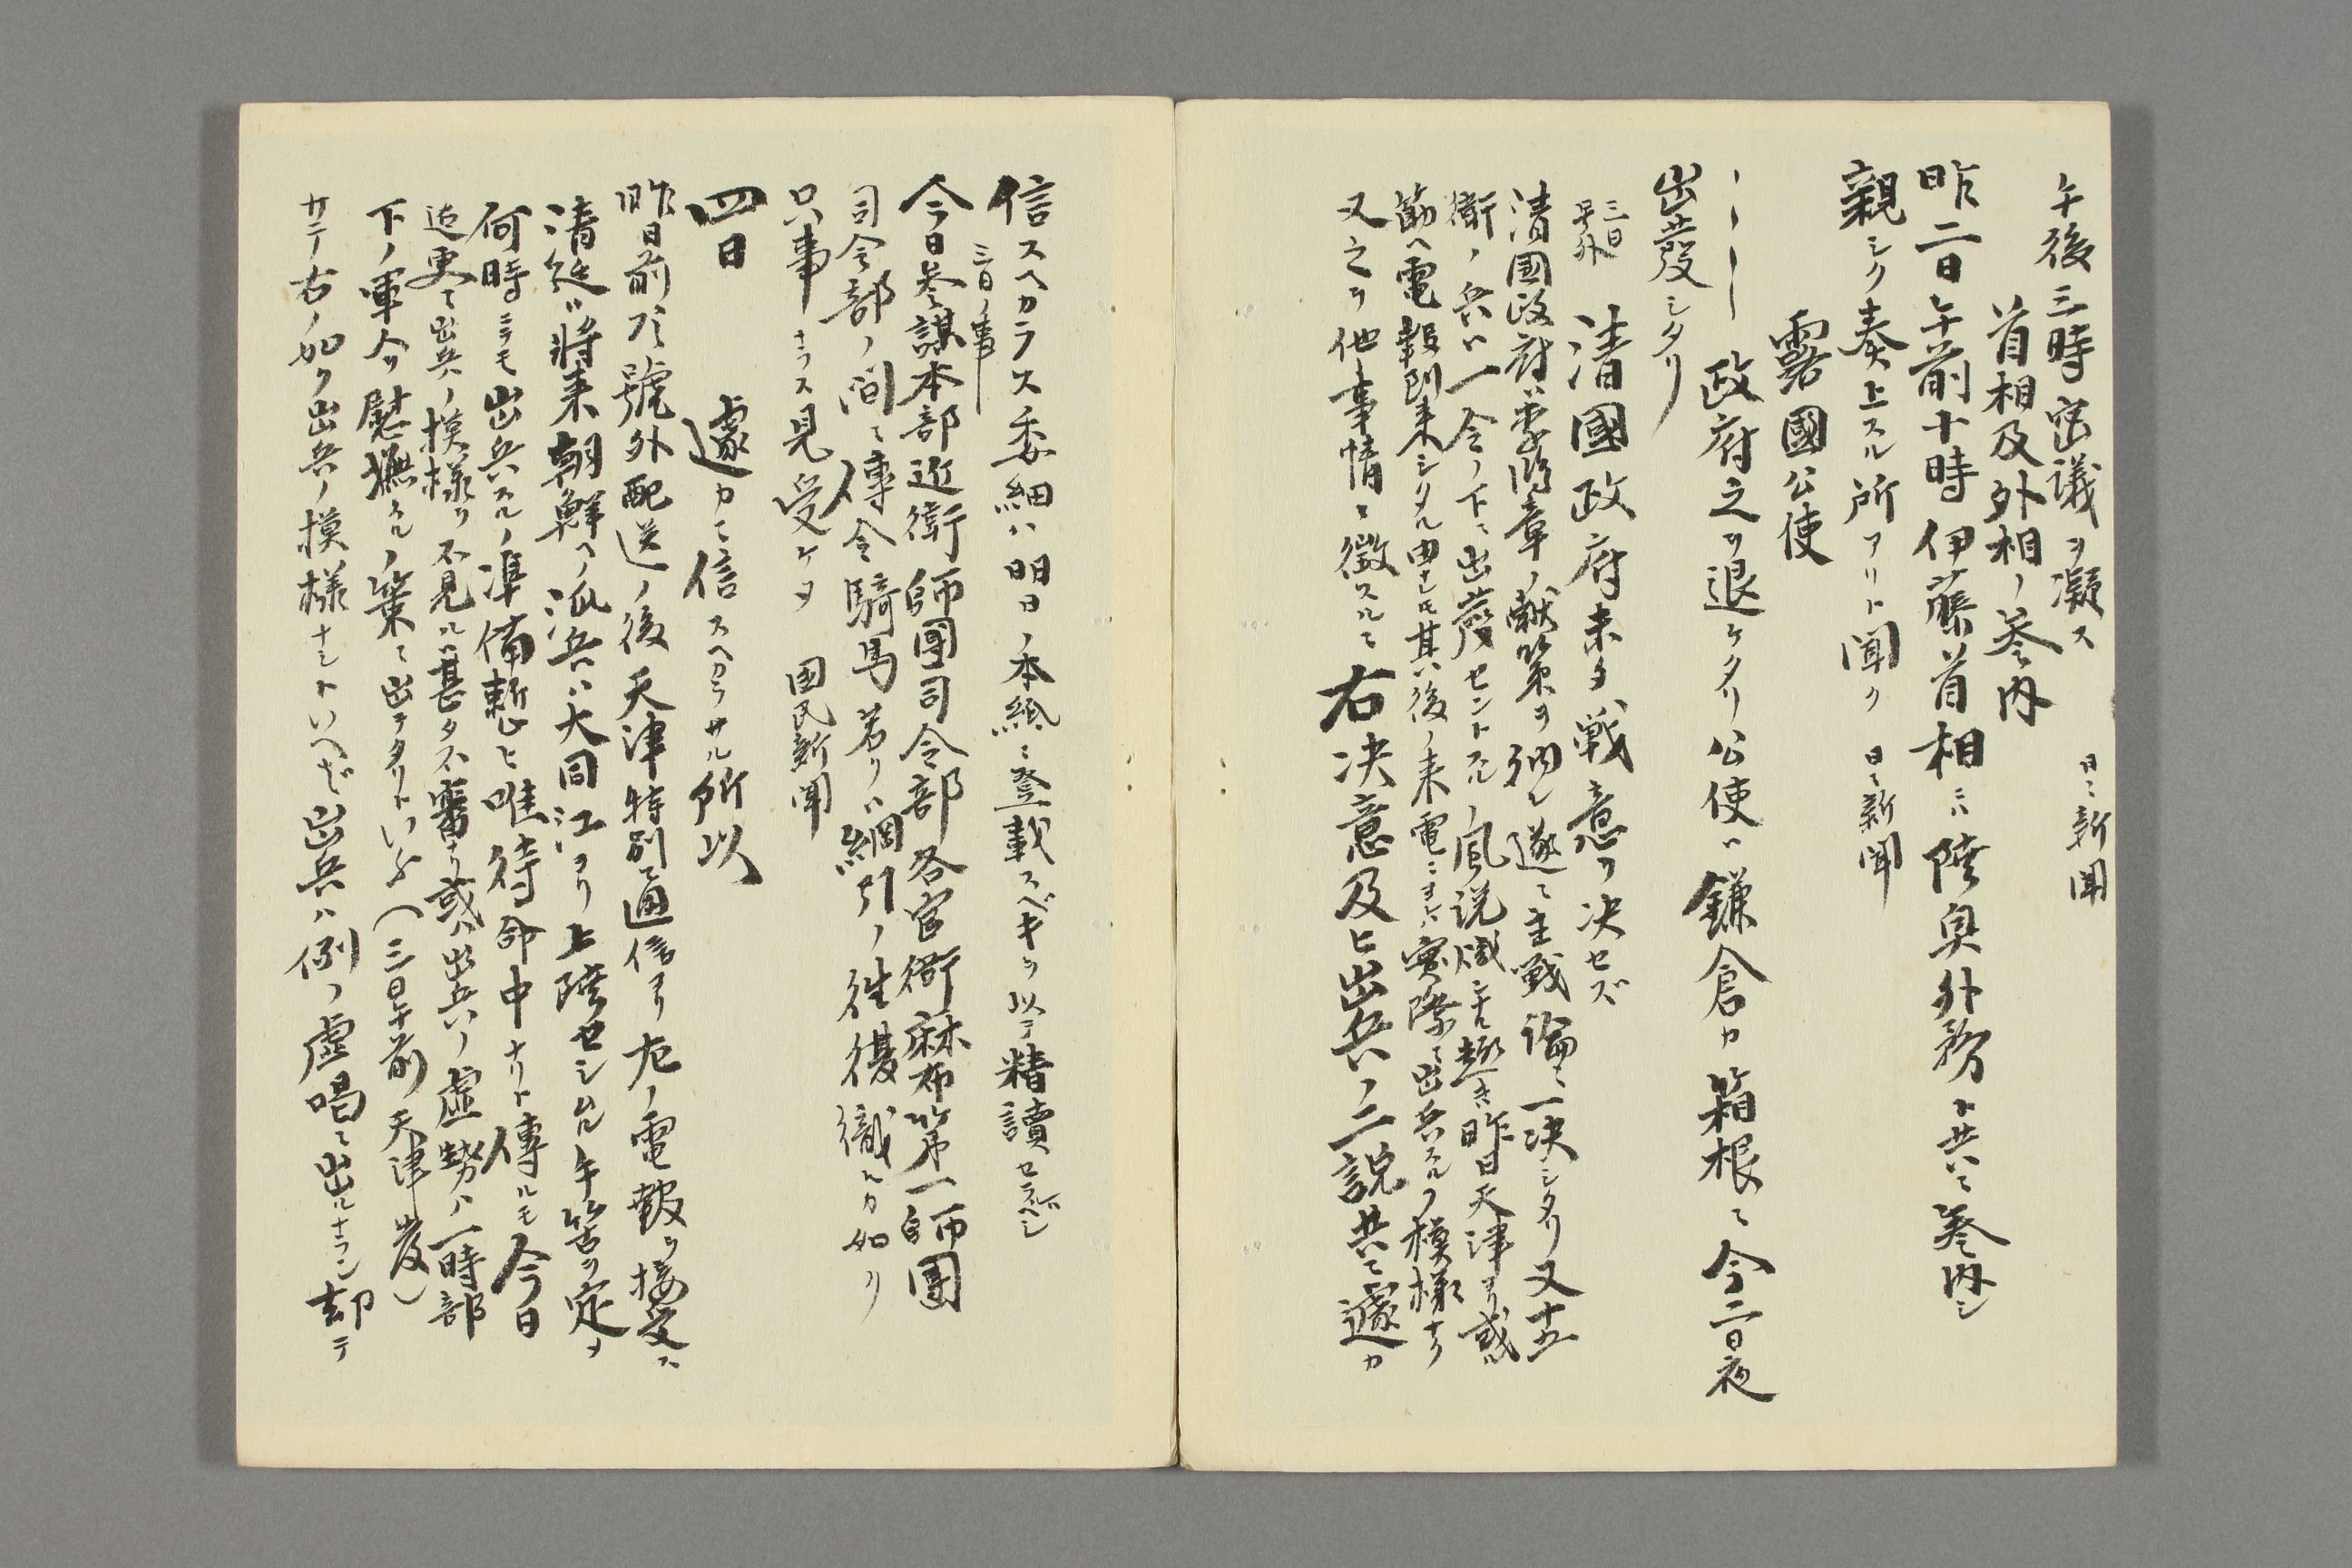 午後三時密議ヲ凝ス
日々新聞
首相及外相ノ参内
昨二日午前十時伊藤首相ニハ陸奥外務ト共ニ参内シ
親シク奏上スル所アリト聞ク 日々新聞
露國公使
政府之ヲ退ケタリ公使ハ鎌倉カ箱根ニ今二日夜
出立發シタリ
三日号外
清國政府未タ戦意ヲ决セズ
清國政府ハ李鴻章ノ献策ヲ納レ遂ニ主戦論ニ一决シタリ又十五
衛ノ兵ハ一令ノ下ニ出發セントスルノ風説熾ナル趣き昨日天津ヨリ或
筋ヘ電報到来シタル由ナレ𪜈其後ノ来電ニヨレハ實際ニ出兵スルノ模様ナク
又之ヲ他事情ニ徴スルニ右决意及ヒ出兵ノ二説共ニ遽カニ
信スヘカラス委細ハ明日ノ本紙ニ登載スベキヲ以テ精讀セラルベシ
三日ノ事
今日参謀本部近衛師團司令部各官衙麻布第一師團
司令部ノ間ニ傳令騎馬若クハ綱引ノ徃復織ルカ如ク
只事ナラス見受ケタ 国民新聞
四日
遽カニ信スヘカラサル所以
昨日前ノ號外配送ノ後天津特別通信ヨリ左ノ電報ヲ接受ス
清廷ハ將来朝鮮ヘノ派兵ハ大同江ヨリ上陸セシムル手筈ヲ定メ
何時ニテモ出兵スルノ準備整ヒ唯待命中ナリト傳ルモ今日
迄更ニ出兵ノ摸様ヲ不見ルハ甚タ不審ナリ或ハ出兵ノ虚勢ハ一時部
下ノ軍人ヲ慰撫スルノ策ニ出テタリトいふ（三日午前天津發）
サテ右ノ如ク出兵ノ摸様ナシトいヘど出兵ハ例ノ虚喝ニ出ルナラン却テ